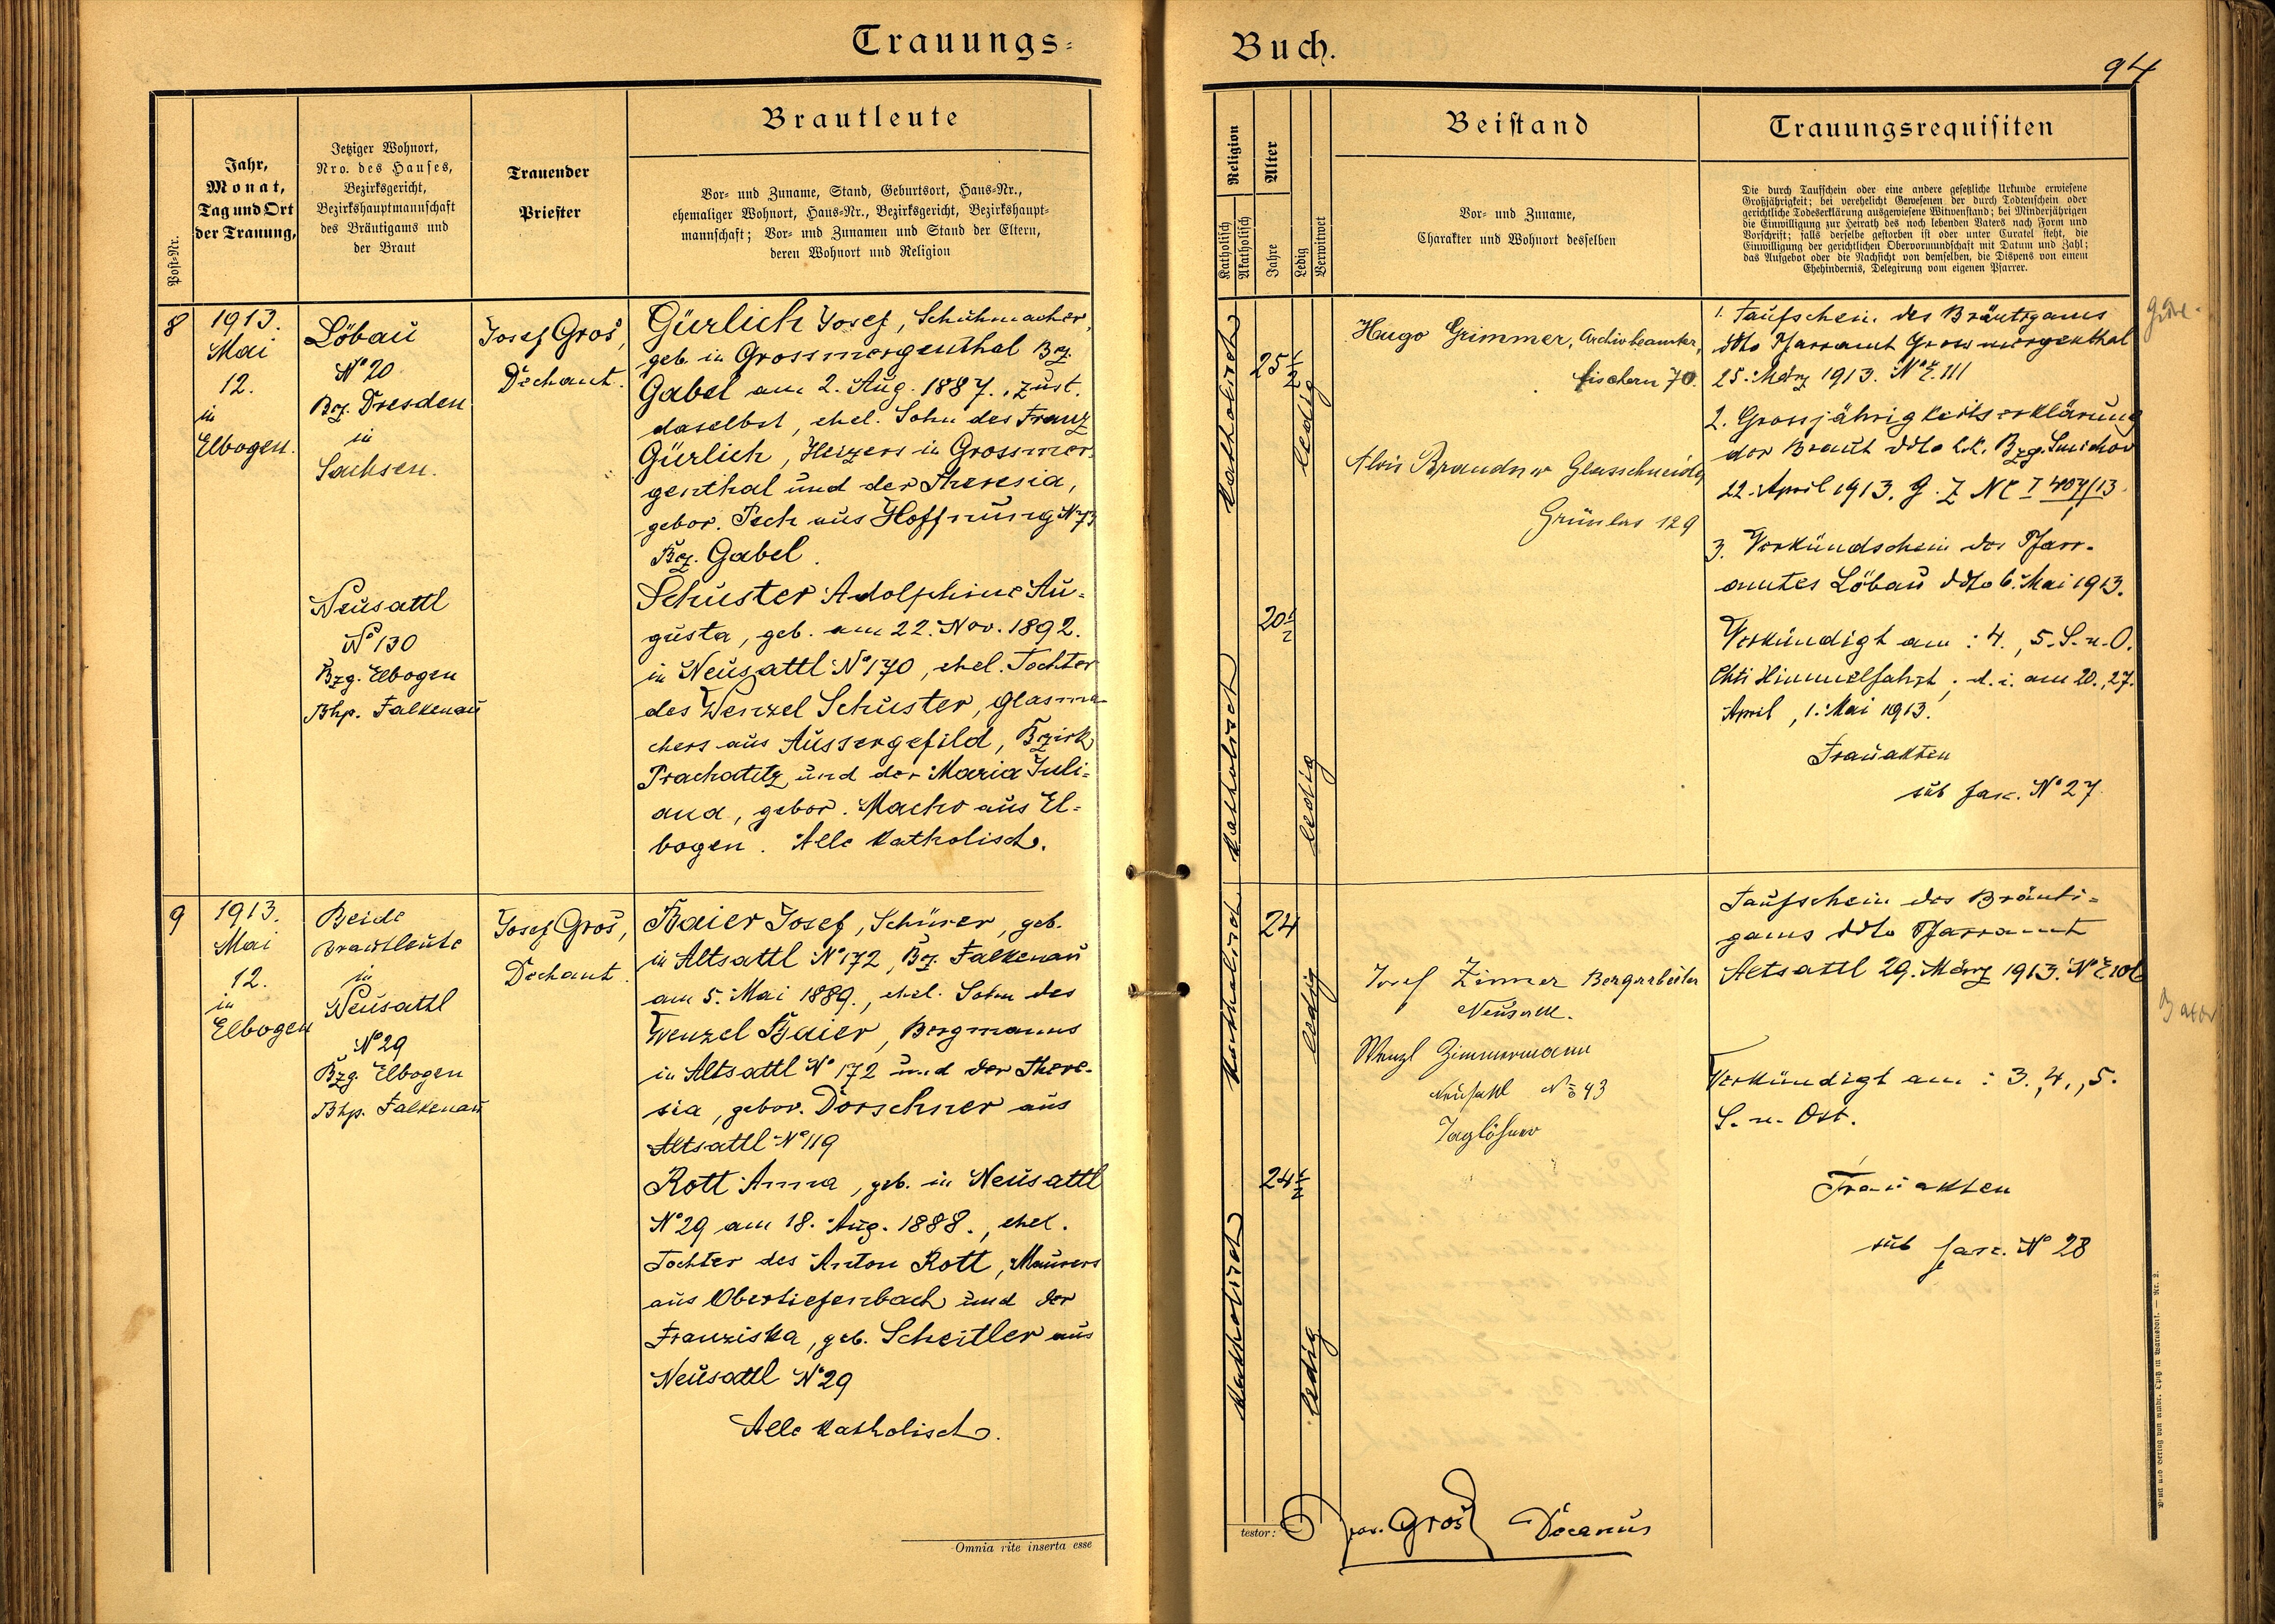 Trauungs-
Post-Nr.
Jahr,
Monat,
Tag und Ort
der Trauung,
Jetziger Wohnort,
Nro. des Hauses,
Bezirksgericht,
Bezirkshauptmannschaft
des Bräutigams und
der Braut
Trauender
Priester
Brautleute
Vor- und Zuname, Stand, Geburtsort, Haus-Nr.,
ehemaliger Wohnort, Haus-Nr., Bezirksgericht, Bezirkshaupt-
mannschaft; Vor- und Zunamen und Stand der Eltern,
deren Wohnort und Religion
8
1913.
Mai
12.
in
Elbogen.
Löbau
No 20
Bez. Dresden
in
Sachsen.
Josef Groš,
Dechant.
Gürlich Josef, Schuhmacher,
geb. in Grossmergenthal Bez.
Gabel am 2. Aug. 1887., zust.
daselbst, ehel. Sohn des Franz
Gürlich, Heizers in Grossmer-
genthal und der Theresia,
gebor. Pech aus Hoffnung No 73
Bez. Gabel.
Neusattl
No 130
Bzg. Elbogen
Bhp. Falkenau
Schuster Adolphine Au-
gusta, geb. am 22. Nov. 1892.
in Neusattl No 170, ehel. Tochter
des Wenzel Schuster, Glasma-
chers aus Aussergefild, Bezirk
Prachatitz und der Maria Juli-
ana, gebor. Macho aus El-
bogen. Alle katholisch.
9
1913.
Mai
12.
in
Elbogen
Beide
Brautleute
in
Neusattl
No 29
Bzg. Elbogen
Bhp. Falkenau
Josef Groš,
Dechant.
Baier Josef, Schürer, geb.
in Altsattl No 172, Bez. Falkenau
am 5. Mai 1889., ehel. Sohn des
Wenzel Baier, Bergmanns
in Altsattl No 172 und der There-
sia, gebor. Dorschner aus
Altsattl No 119
Rott Anna, geb. in Neusattl
No 29 am 18. Aug. 1888., ehel.
Tochter des Anton Rott, Maurers
aus Obertiefenbach und der
Franziska, geb. Scheitler aus
Neusattl No 29
Alle katholisch.
Omnia rite inserta esse
Buch.
94
Religion
Katholisch
Akatholisch
Alter
Jahre
Ledig
Verwitwet
Beistand
Vor- und Zuname,
Charakter und Wohnort desselben
Trauungsrequisiten
Die durch Taufschein oder eine andere gesetzliche Urkunde erwiesene
Großjährigkeit; bei verehelicht Gewesenen der durch Todtenschein oder
gerichtliche Todeserklärung ausgewiesene Witwenstand; bei Minderjährigen
die Einwilligung zur Heirath des noch lebenden Vaters nach Form und
Vorschrift; falls derselbe gestorben ist oder unter Curatel steht, die
Einwilligung der gerichtlichen Obervormundschaft mit Datum und Zahl;
das Aufgebot oder die Nachsicht von demselben, die Dispens von einem
Ehehindernis, Delegirung vom eigenen Pfarrer.
Katholisch
25 1/2
ledig
Hugo Grimmer, Archivbeamter,
Fischern 70.
Alois Brandner Glasschneider
Grünlas 129
1. Taufschein des Bräutigams
ddto Pfarramt Grossmergenthal
25. März 1913. No E. 111
2. Grossjährigkeitserklärung
der Braut ddto k.k. Bzg. Smichov
22. April 1913. G. Z. Nc I 407/13.
3. Verkündschein des Pfarr-
amtes Löbau ddto 6. Mai 1913.
Katholisch
20 1/2
ledig
Verkündigt am: 4., 5. S. n. O.
Chti Himmelfahrt, d. i. am 20., 27.
April, 1. Mai 1913.
Trauakten
sub fasc. No 27.
Katholisch
24
ledig
Josef Zimmer Bergarbeiter
Neusattl.
Wenzl Zimmermann
Neusattl No 43
Taglöhner
Taufschein des Bräuti-
gams ddto Pfarramt
Altsattl 29. März 1913. No E 106
Baier
Verkündigt am: 3., 4., 5.
S. n. Ost.
Katholisch
24 1/2
ledig
Trauakten
sub fasc. No 28
testor:
Jos. Groš Decanus